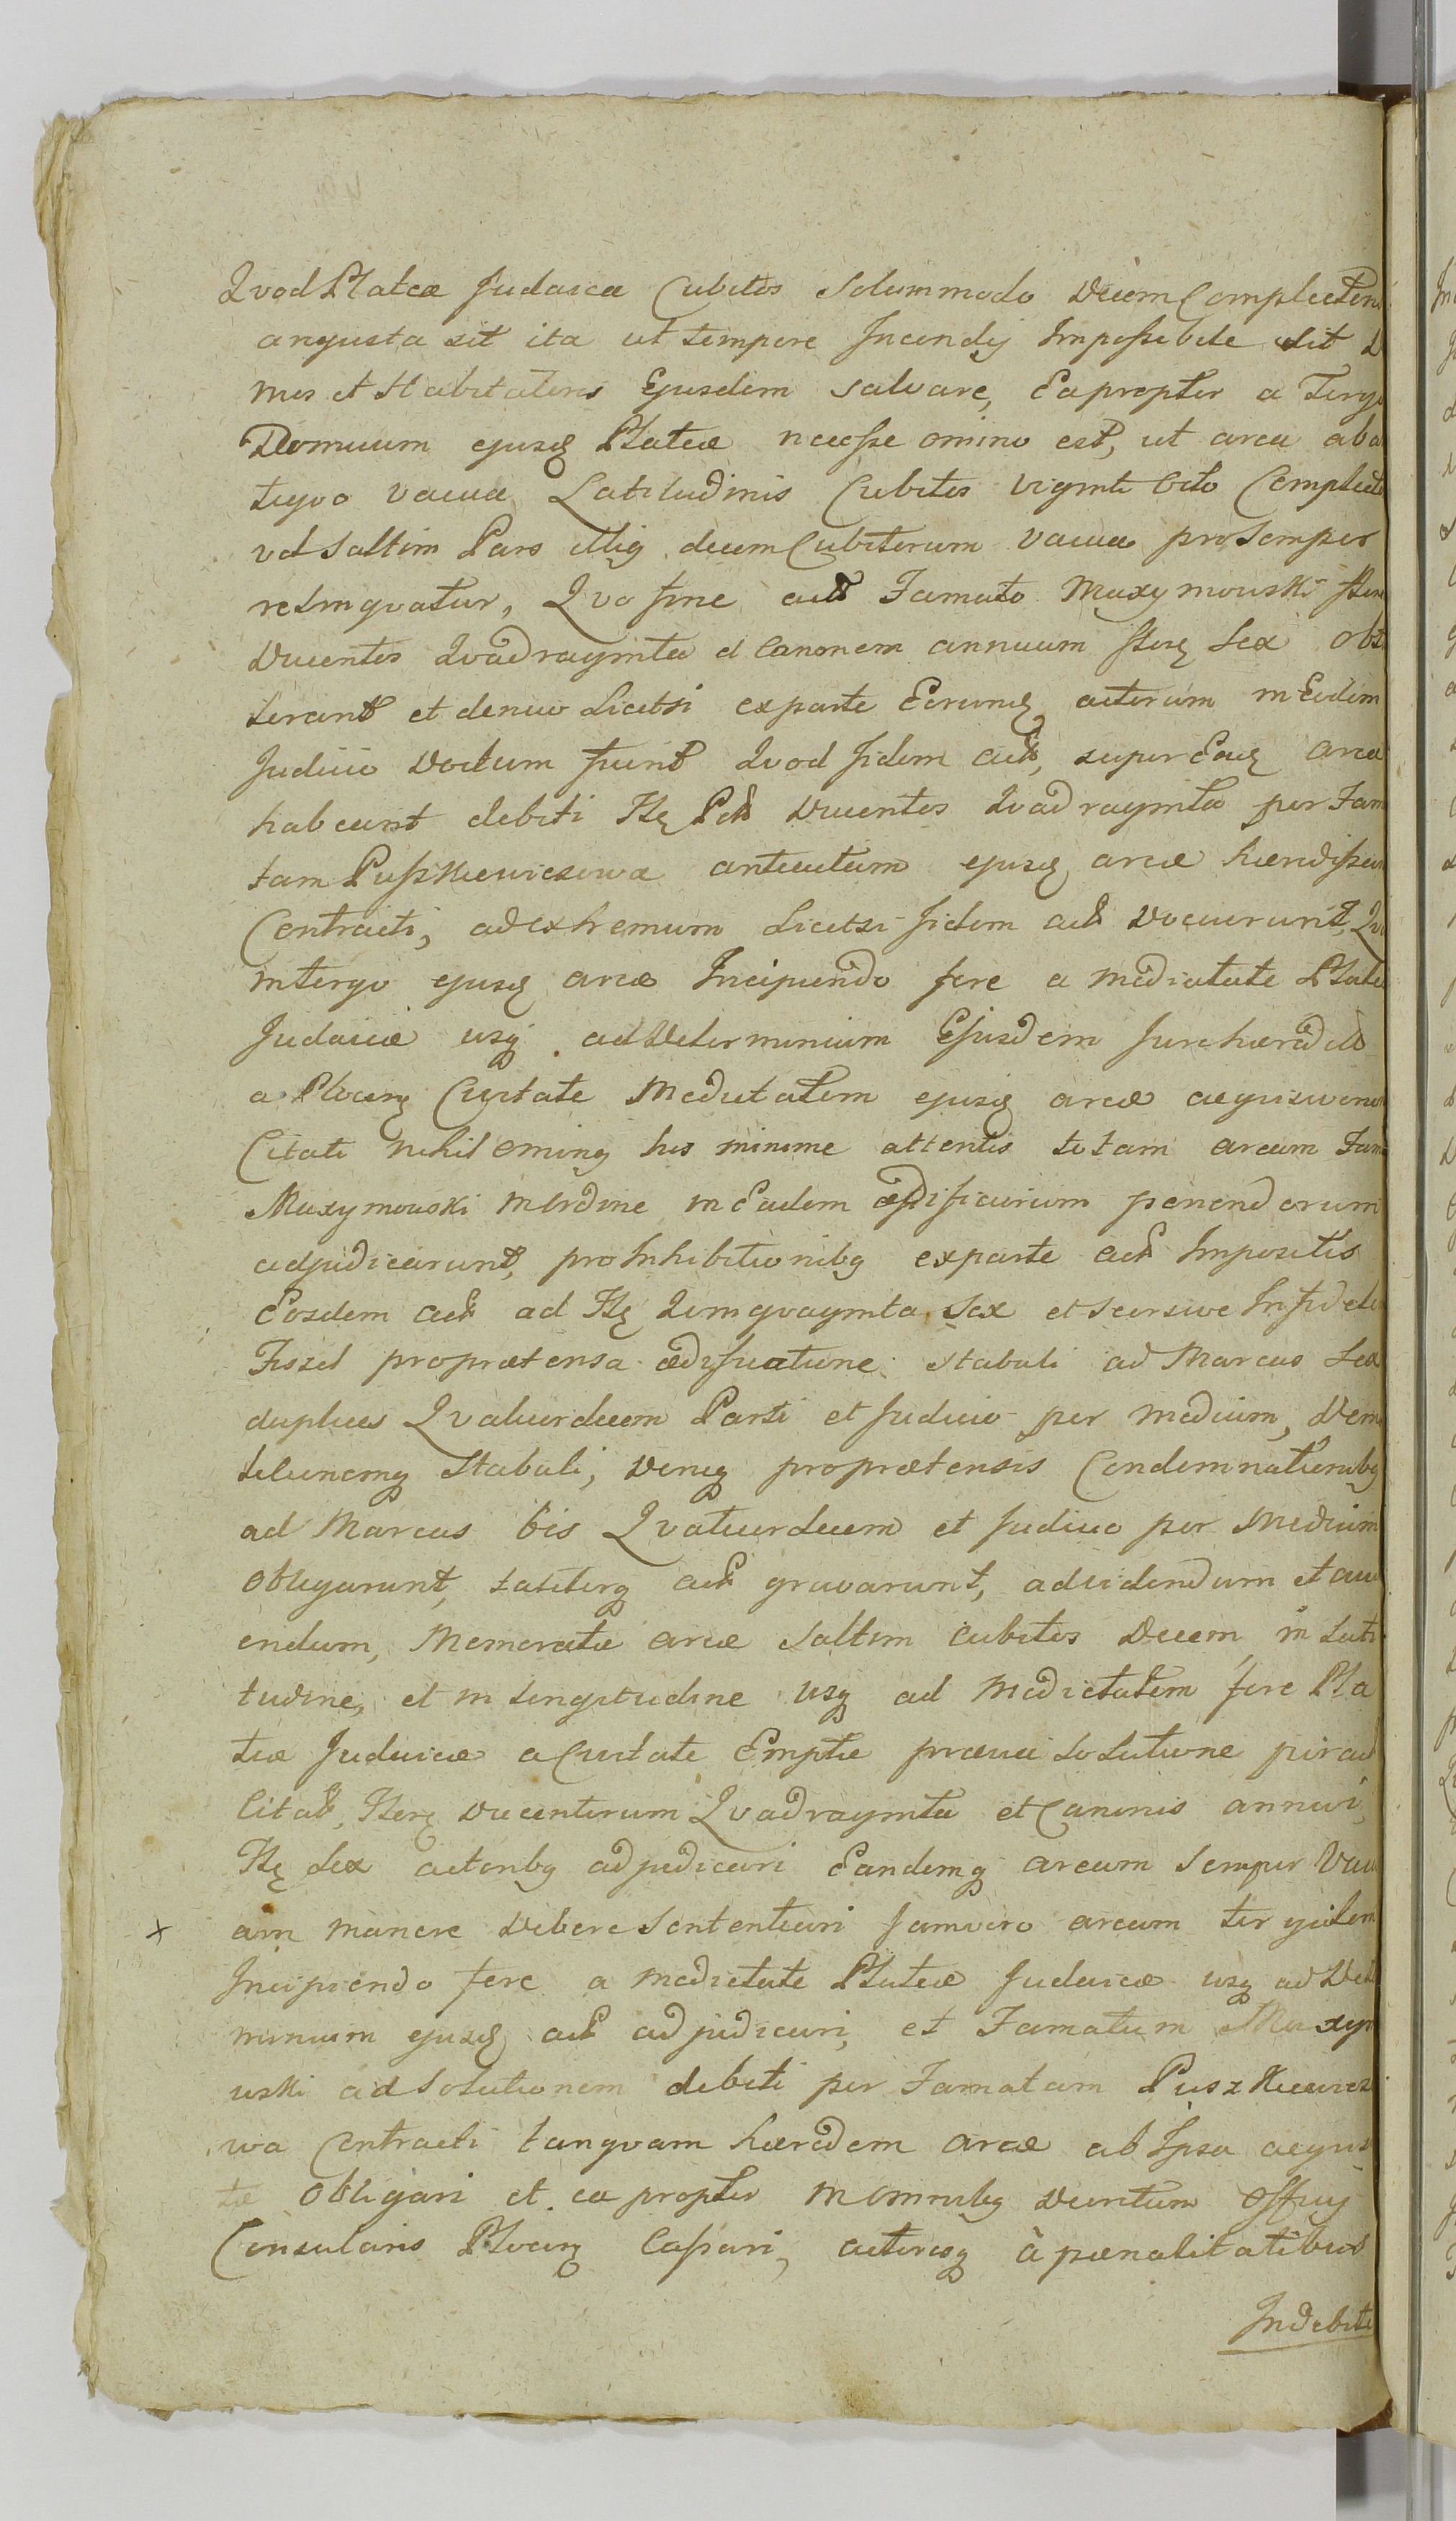 Qvod Platea Judaica Cubitos Solummodo Decem Complecten
angusta sit ita ut tempore Incendij Impossibile sit D
mos et Habitatores Ejusdem salvare, Eapropter a Tergo
Domuum ejusq Plateæ necesse omino est, ut area aba
tiqvo vacua Latitudinis Cubitos viginti Octo Complect
vel saltim Pars illiq decem Cubitorum vacua pro semper
relinqvatur, Qvo fine act Famato Maxymowski
Ducentos Qvadraginta et Canonem annuum sex obt
lerant et denuo Licetsi exparte Eorund actorum in Eodem
Judicio Doctum fuerit Qvod Jidem act, super Ead area
habeant debiti Fl Pol Ducentos Qvadraginta per Fam
tam Puszkiewiczowa anteactam ejusd areæ hæredissam
Contracti, ad extremum Licetsi Jidem act Docuerunt, Qv
intergo ejusd areæ Incipiendo fere a medietate Plate
Judaicæ usq ad Determinium Ejusdem Jure hæredit
a Plocen Civitate Medietatem ejusd areæ aqvisiveru
Citati nihil oming his minime attentis totam aream Fam
Maxymowski inordine in Eadem ædificiorum ponendorum
adjudicarunt, pro Inhibitionibq exparte act Impositis
Eosdem act ad Fl Qvinqvaginta sex et seorsive Infidel
Fiszel pro prætensa ædificatione stabuli ad Marcas sex
duplices Qvatuordecem Parti et Judicio per medium, Dem
litionemq Stabuli, Deniq pro prætensis Condemnationibq
ad Marcas bis Qvatuordecem et Judicio per Medium
obligarunt, taliterq act gravarunt, ad videndum et audi
endum, Memoratæ areæ saltim cubitos Decem in Lati
tudine, et in longitudine usq ad Medietatem fere Pla
teæ Judaicæ a Civitate Emptæ prævia solutione per act
Citat, Fler Ducentorum Qvadraginta et Canonis annui
Fl sex actoribq adjudicari Eandemq aream semper Vacu
am manere Debere sententiari Jamvero aream tergalem
Incipiendo fere a medietate Plateæ Judaicæ usq ad Det
minium ejusd act adjudicari, et Famatum Maxym
wski ad solutionem debiti per Famatam Puszkiewiczo
wa Contracti tanqvam hæredem areæ ab Ipsa aqvisi
tæ obligari et ea propter in omnibq Decretum Officij
Consularis Plocen Cassari, actoresq à pænalitatibus
Indebite